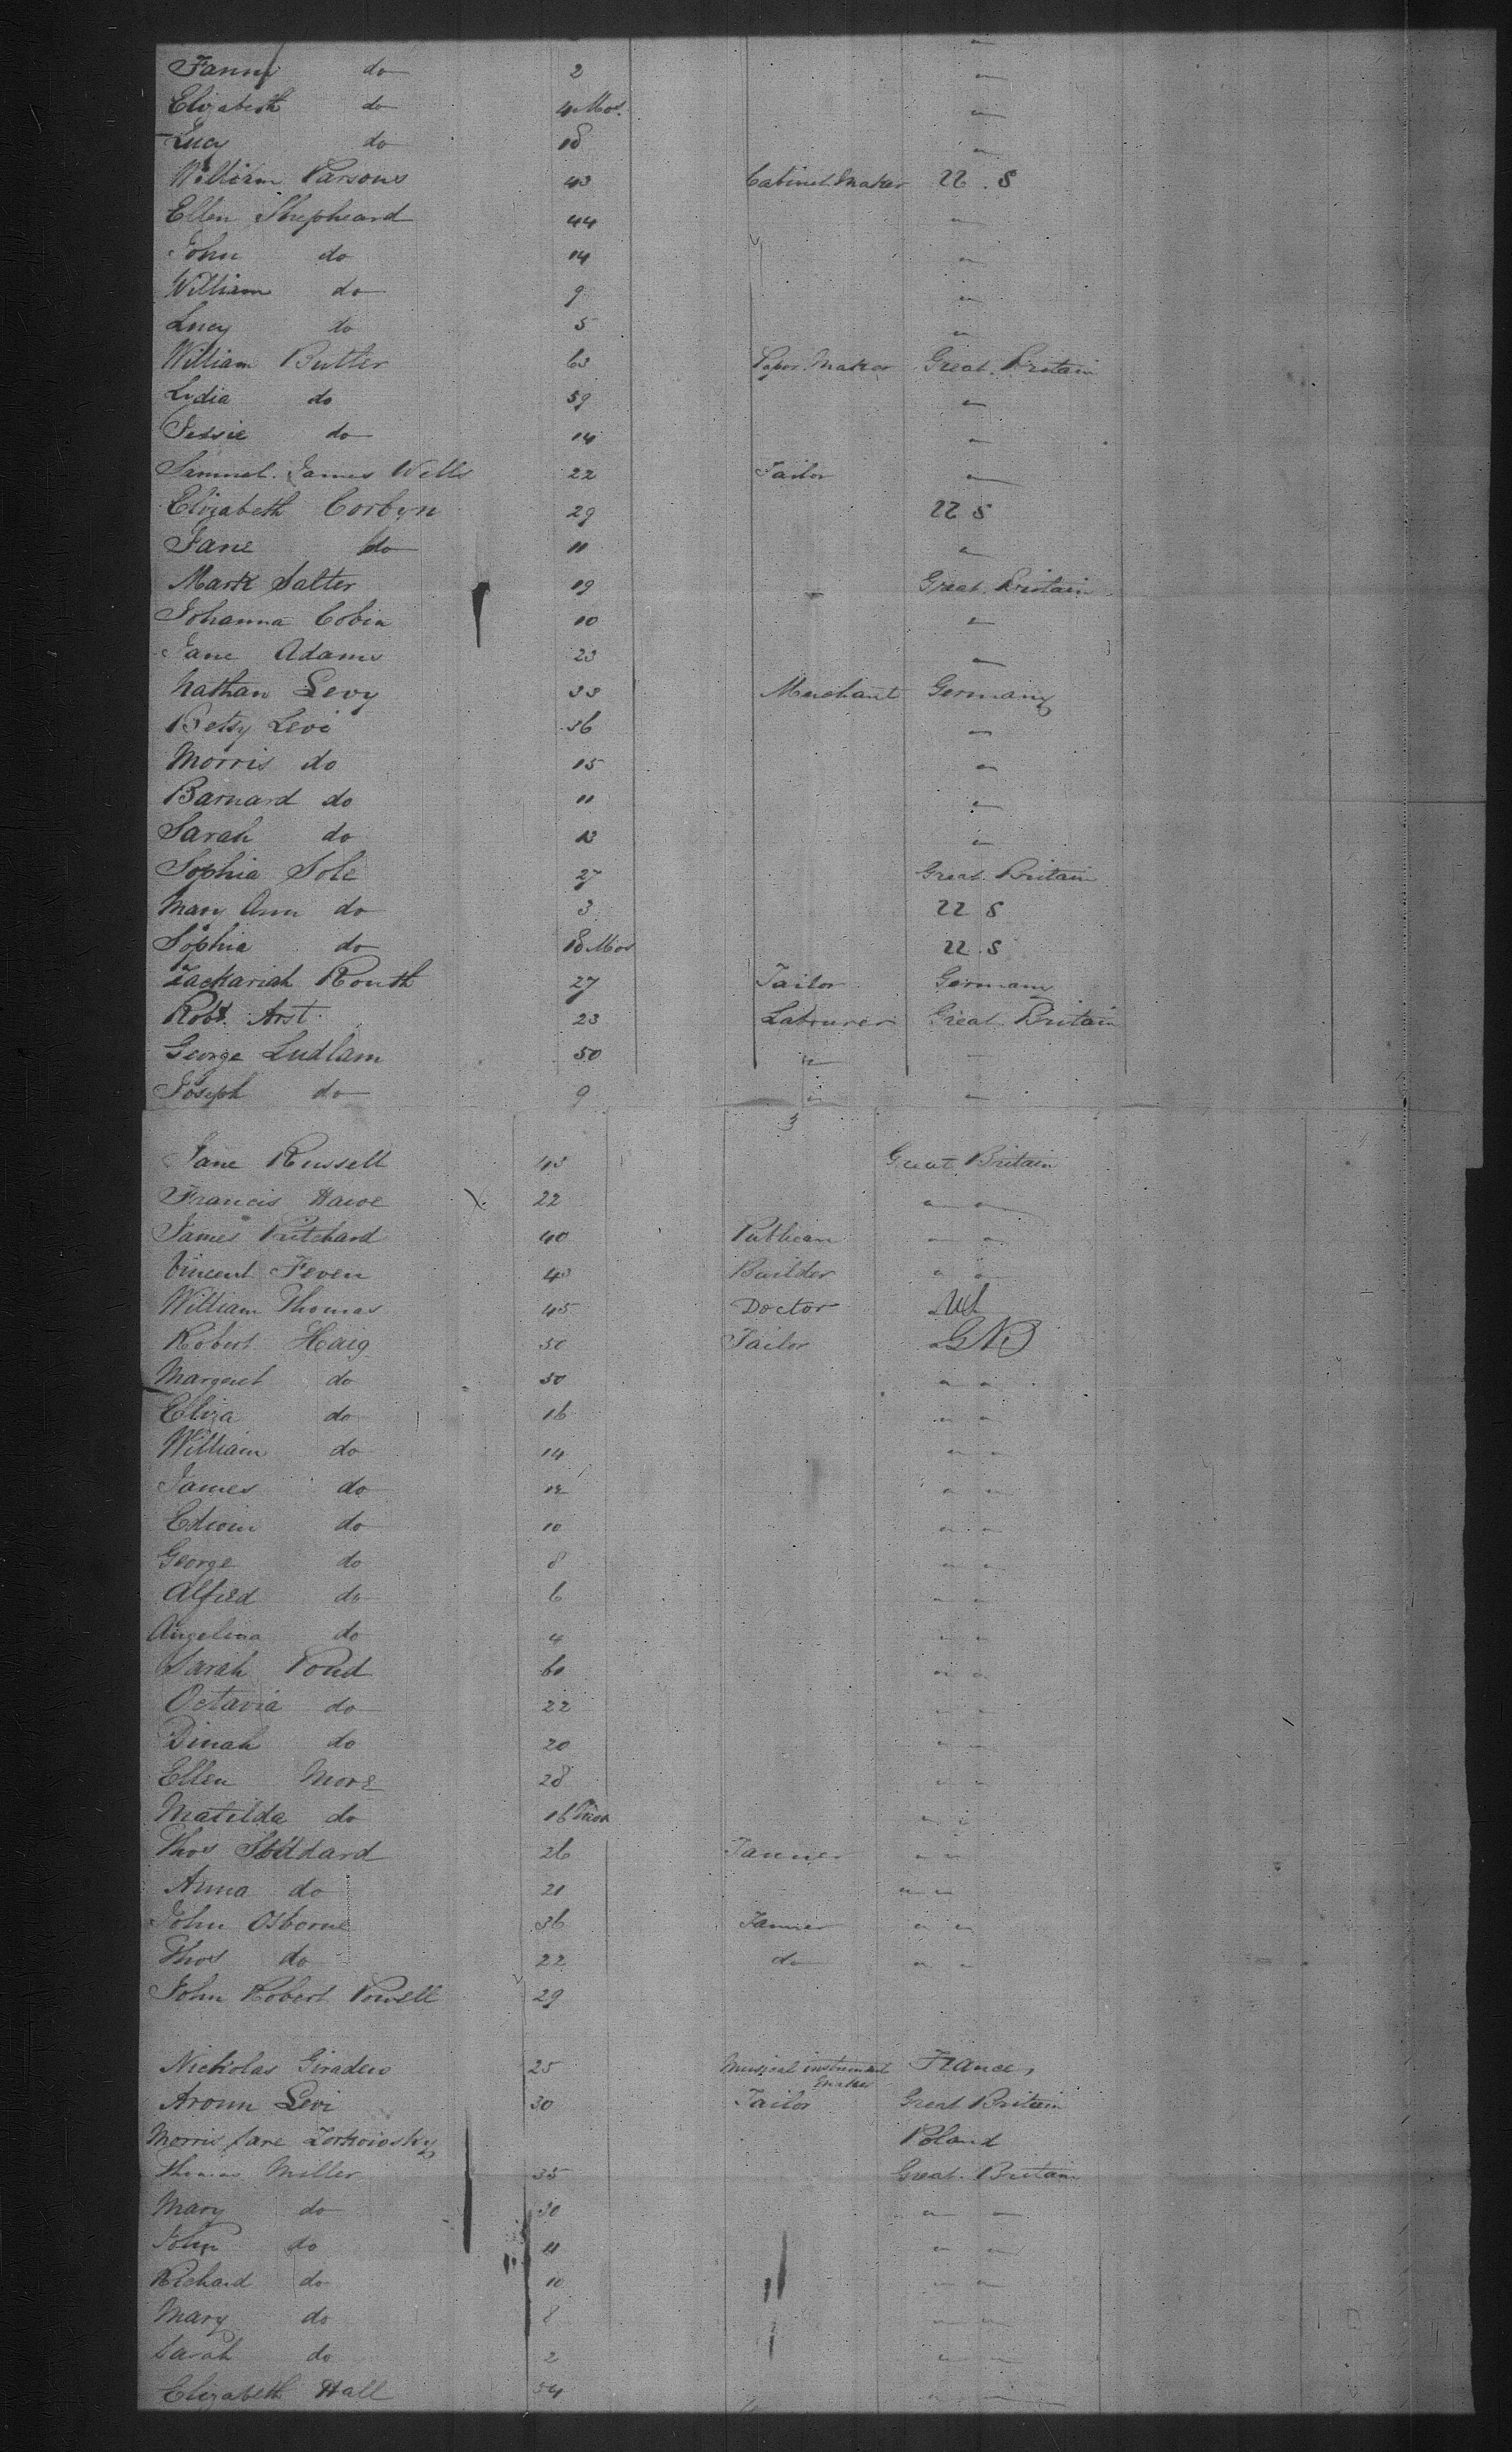 Fanny do 2 "
Elizabeth do 4 Mos. "
Lucy do 18 "
William Parsons 43 Cabinet Maker U. S
Ellen Shepheard 44 "
John do 14 "
William do 9 "
Lucy do 5 "
William Butler 63 Paper Maker Great Britain
Lydia do 59 "
Jessie do 14 "
Samuel James Wells 22 Tailor "
Elizabeth Corbyn 29 U S
Jane do 11 "
Mark Salter 19 Great Britain
Johanna Cobin 10 "
Jane Adams 23 "
Nathan Levy 33 Merchant Germany
Betsy Levi 36 "
Morris do 15 "
Barnard do 11 "
Sarah do 13 "
Sophia Sole 27 Great Britain
Mary Ann do 3 U S
Sophia do 18 Mos U. S
Zackariah Routh 27 Tailor Germany
Robt. Arst 23 Labourer Great Britain
George Ludlam 50 " "
Joseph do 9 " "
3
Jane Russell 43 Great Britain
Francis Hawe 22 " "
James Pritchard 40 Publican " "
Vincent Feven 43 Builder " "
William Thomas 45 Doctor
Robert Haig 50 Tailor
Margaret do 50 " "
Eliza do 16 " "
William do 14 " "
James do 12 " "
Edwin do 10 " "
George do 8 " "
Alfred do 6 " "
Angelina do 4 " "
Sarah Pond 61 " "
Octavia do 22 " "
Dinah do 20 " "
Ellen More 28 " "
Matilda do 16 Mos " "
Thos Stoddard 26 Tanner " "
Anna do 21 " "
John Osborne 36 Tanner " "
Thos do 22 do " "
John Robert Powell 29
Nicholas 25 Musical instrument maker France,
Aronn Levi 30 Tailor Great Britain
Morris Poland
Thomas Miller 35 Great Britain
Mary do 30 " "
John do 11 " "
Richard do 10 " "
Mary do 8 " "
Sarah do 2 " "
Elizabeth Hall 54 " "